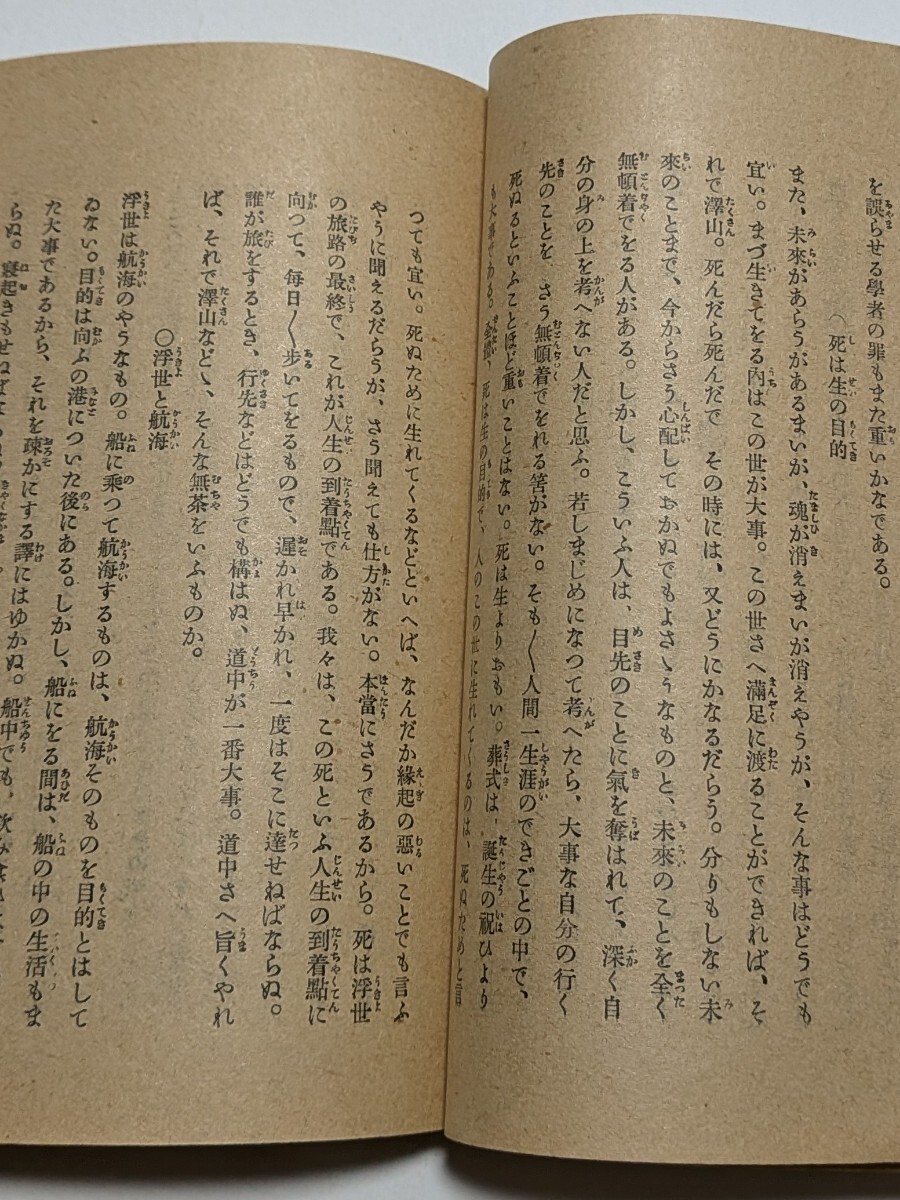 を誤らせる學者の罪もまた重いかなである。
死は生の目的
また、未來があらうがあるまいが、魂が消えまいが消えやうが、そんな事はどうでも
宜い。まづ生きてをる內はこの世が大事。この世さへ滿足に渡ることができれば、そ
れで澤山。死んだら死んだで その時には、又どうにかなるだらう。分りもしない未
來のことまで、今からさう心配しておかぬでもよさゝうなものと、未來のことを全く
無頓着でをる人がある。しかし、こういふ人は、目先のことに氣を奪はれて、深く自
分の身の上を考へない人だと思ふ。若しまじめになつて考へたら、大事な自分の行く
先のことを、さう無頓着でをれる筈がない。そも〱人間一生涯のできごとの中で、
死ぬるといふことほど重いことはない。死は生よりおもい。葬式は、誕生の祝ひより
も大事である。全體、死は生の目的で、人のこの世に生れてくるのは、死ぬためと言
つても宜い。死ぬために生れてくるなどといへば、なんだか緣起の惡いことでも言ふ
やうに聞えるだらうが、さう聞えても仕方がない。本當にさうであるから。死は浮世
の旅路の最終で、これが人生の到着點である。我々は、この死といふ人生の到着點に
向つて、每日〱步いてをるもので、遲かれ早かれ、一度はそこに達せねばならぬ。
誰が旅をするとき、行先などはどうでも構はぬ、道中が一番大事。道中さへ旨くやれ
ば、それで澤山などゝ、そんな無茶をいふものか。
〇浮世と航海
浮世は航海のやうなもの。船に乘つて航海するものは、航海そのものを目的とはして
ゐない。目的は向ふの港についた後にある。しかし、船にをる間は、船の中の生活もま
た大事であるから、それを疎かにする譯にはゆかぬ。船中でも、飮み食
らぬ。寢起きもせねば